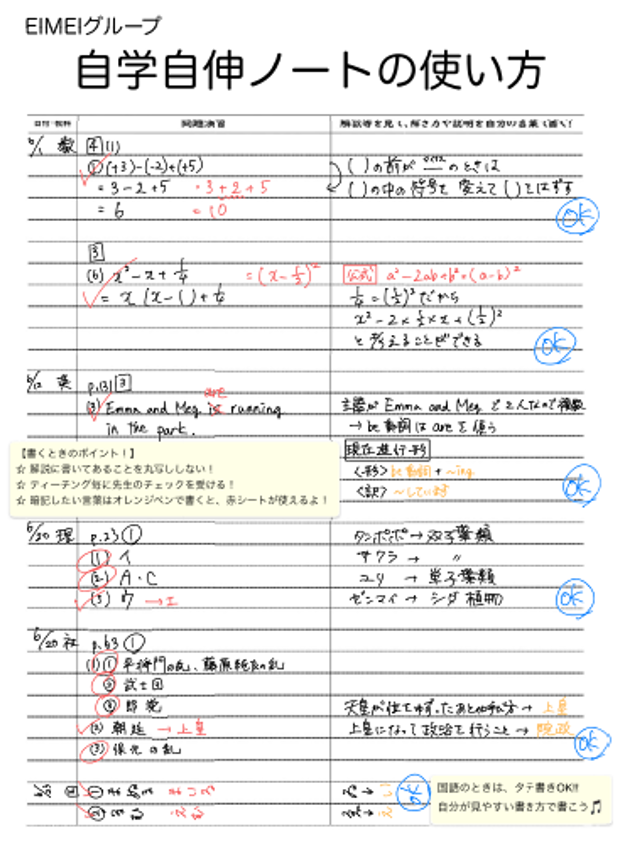 EIMEIグループ
自学自伸ノートの使い方
日付・教科 問題演習 解説等を見て、解き方や説明を自分の言葉で書く!
6/1 数 4 (1)
① (+3)-(-2)+(+5) ( )の前が のときは
= 3-2+5 ・3+2+5 ( )の中の符号を変えて( )をはずす
= 6 =10 OK
3
(6) x²-x+1/4 =(x-1/2)² 公式 a²-2ab+b²=(a-b)²
= x(x-1)+1/4 1/4=(1/2)²だから
x²-2×1/2×x+(1/2)²
と考えることができる OK
6/12 英 p.131 3
are
(3) Emma and Meg is running 主語が Emma and Meg で2人なので複数
in the park. →be動詞はareを使う
【書くときのポイント!】 現在進行形
☆ 解説に書いてあることを丸写ししない! <形> be動詞 + ~ing
☆ ティーチング毎に先生のチェックを受ける! <訳> ~しています OK
☆ 暗記したい言葉はオレンジペンで書くと、赤シートが使えるよ!
6/20 理 p.23 ① タンポポ→双子葉類
(1) イ サクラ→ 〃
(2) A・C ユリ →単子葉類
(3) ウ →エ ゼンマイ→シダ植物 OK
6/20 社 p.63 ①
(1) ① 平将門の乱、藤原純友の乱
② 武士団
③ 郎党 天皇が位をゆずったあとの呼び方→上皇
(2) 朝廷 →上皇 上皇になって政治を行うこと→院政
(3) 保元の乱 OK
国語のときは、タテ書きOK!!
OK
自分が見やすい書き方で書こう♫